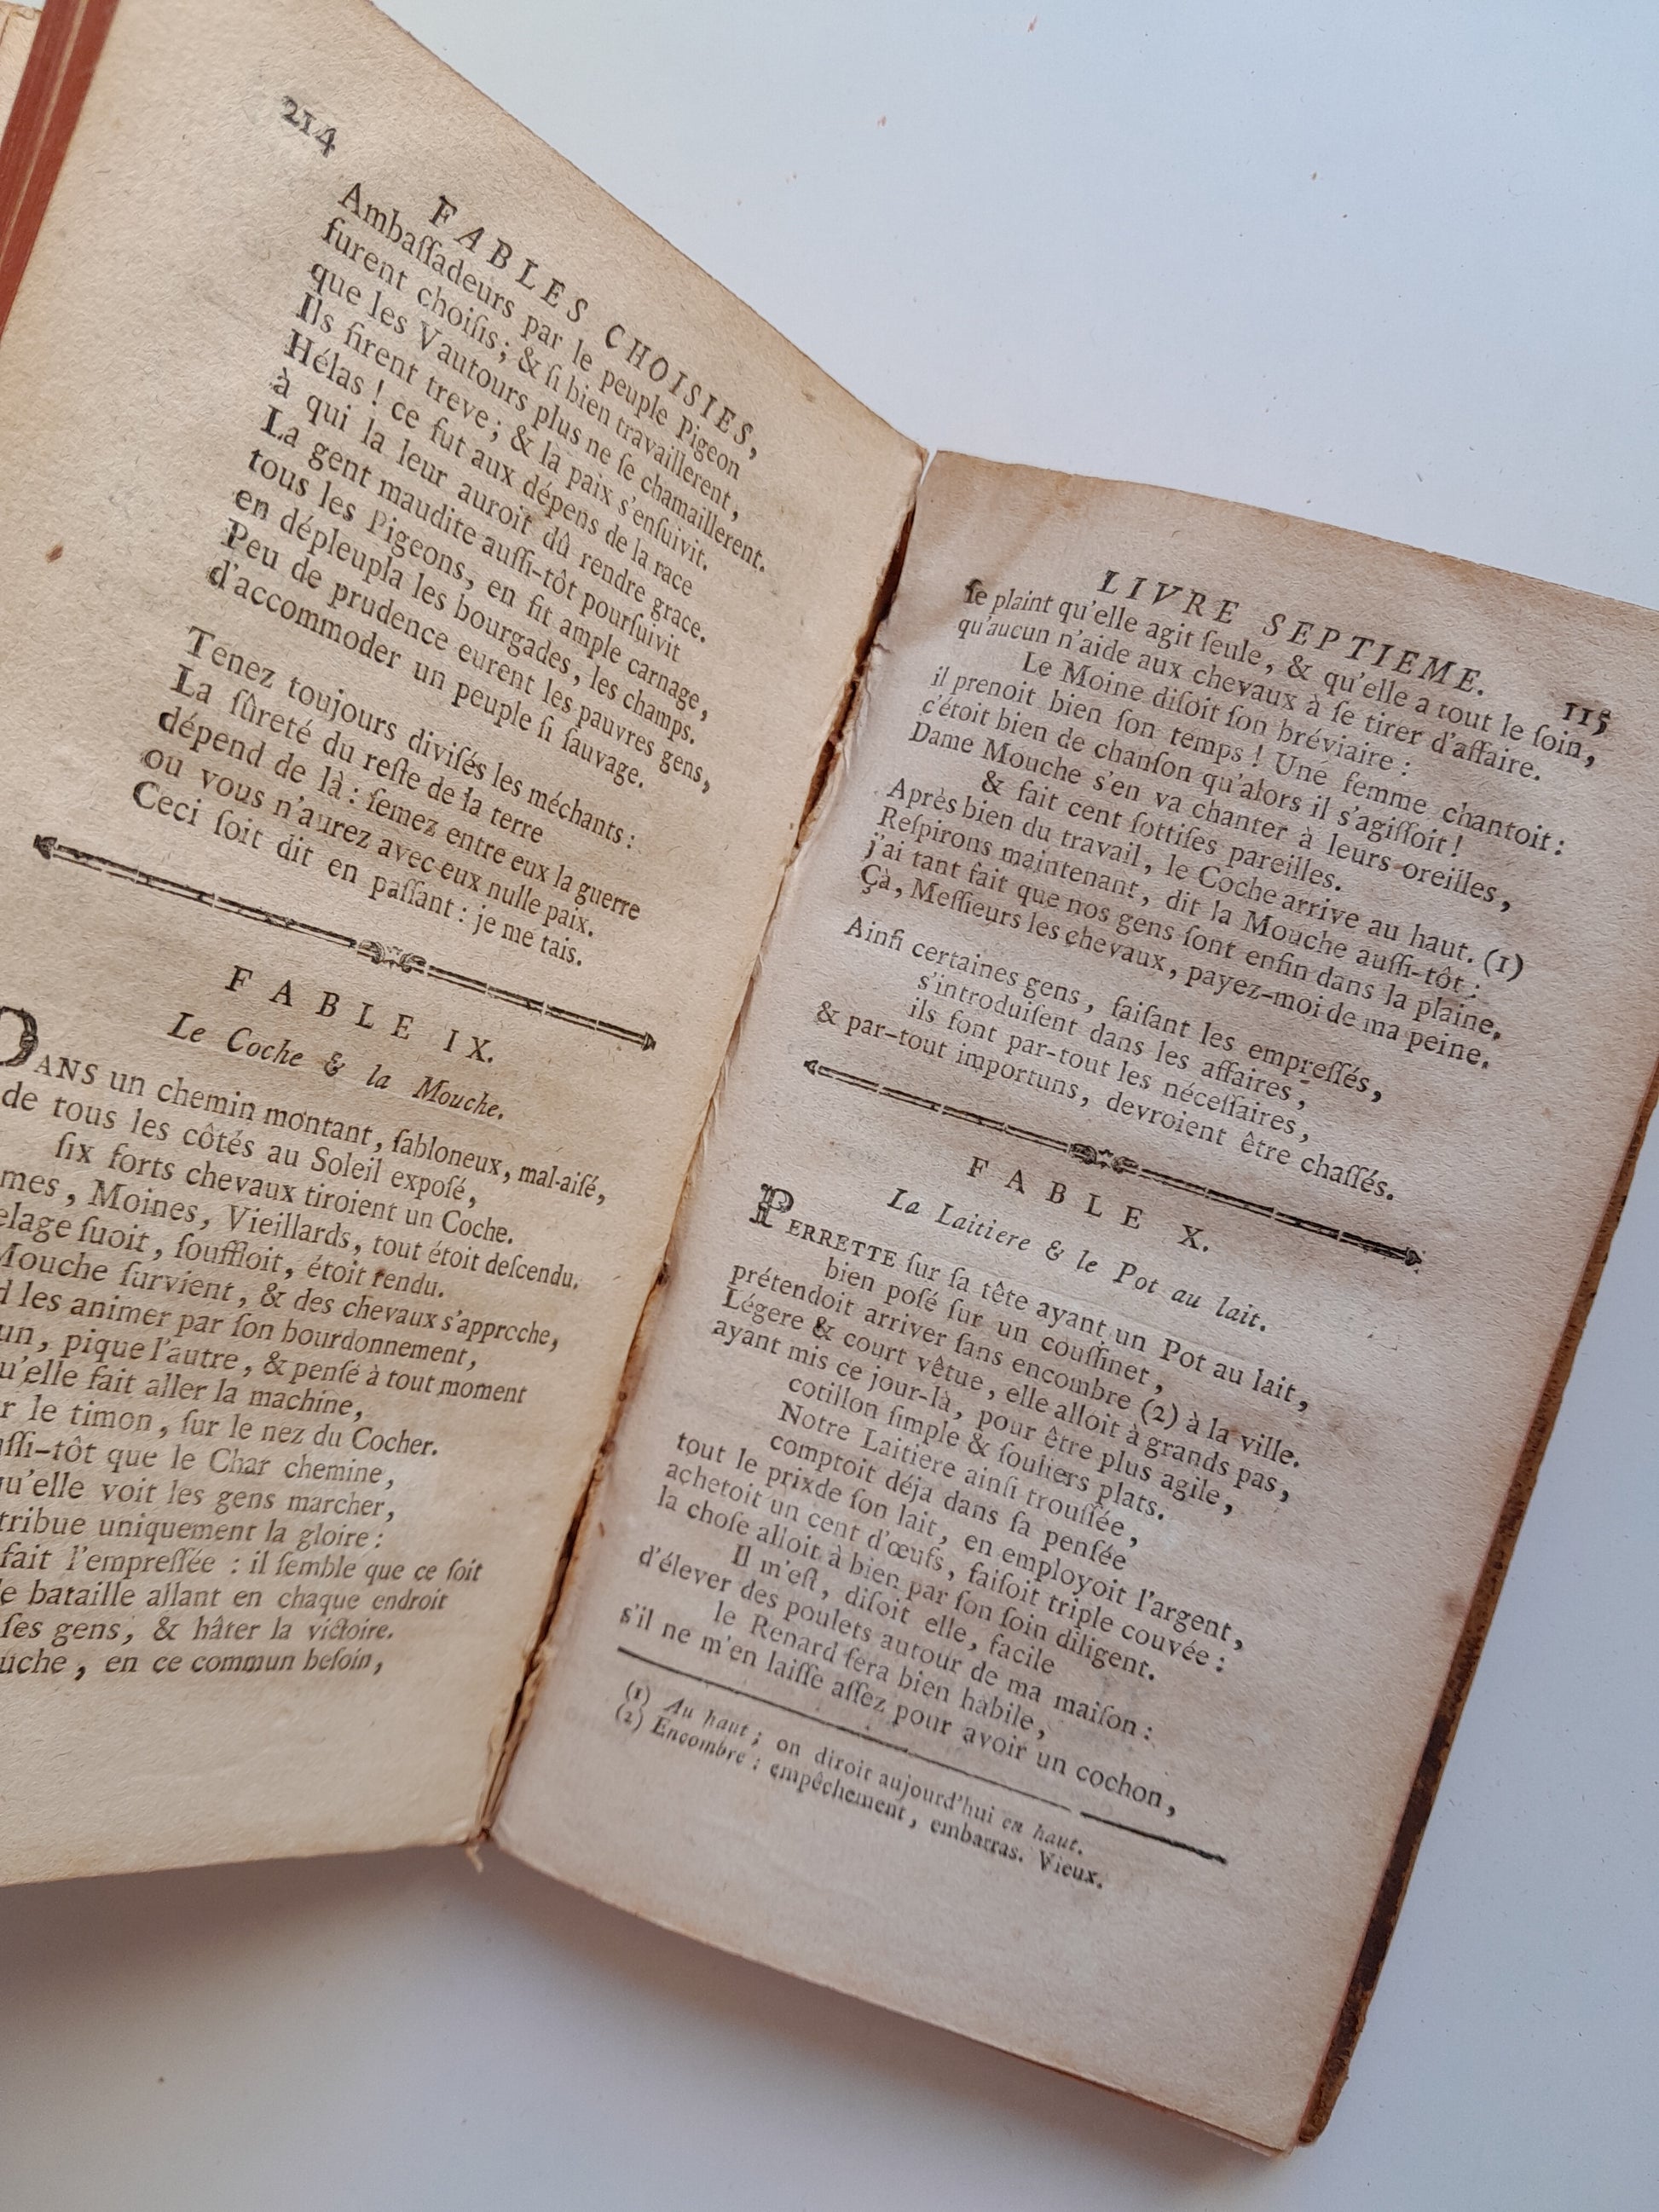 214
FABLES CHOISIES,
Ambaſſadeurs par le peuple Pigeon
furent choiſis ; & ſi bien travaillerent,
que les Vautours plus ne ſe chamaillerent.
Ils firent treve ; & la paix s'enſuivit.
Hélas ! ce fut aux dépens de la race
à qui la leur auroit dû rendre grace.
La gent maudite auſſi-tôt pourſuivit
tous les Pigeons, en fit ample carnage,
en dépleupla les bourgades, les champs.
Peu de prudence eurent les pauvres gens,
d'accommoder un peuple ſi ſauvage.
Tenez toujours diviſés les méchants :
La ſûreté du reſte de la terre
dépend de là : ſemez entre eux la guerre
ou vous n'aurez avec eux nulle paix.
Ceci ſoit dit en paſſant : je me tais.
FABLE IX.
Le Coche & la Mouche.
DANS un chemin montant, ſabloneux, mal-aiſé,
de tous les côtés au Soleil expoſé,
ſix forts chevaux tiroient un Coche.
mes, Moines, Vieillards, tout étoit deſcendu.
elage ſuoit, ſouffloit, étoit rendu.
Mouche ſurvient, & des chevaux s'approche,
d les animer par ſon bourdonnement,
un, pique l'autre, & penſé à tout moment
u'elle fait aller la machine,
r le timon, ſur le nez du Cocher.
uſſi-tôt que le Char chemine,
qu'elle voit les gens marcher,
tribue uniquement la gloire :
fait l'empreſſée : il ſemble que ce ſoit
de bataille allant en chaque endroit
ſes gens, & hâter la victoire.
uche, en ce commun beſoin,
LIVRE SEPTIEME. 115
ſe plaint qu'elle agit ſeule, & qu'elle a tout le ſoin,
qu'aucun n'aide aux chevaux à ſe tirer d'affaire.
Le Moine diſoit ſon bréviaire :
il prenoit bien ſon temps ! Une femme chantoit :
c'étoit bien de chanſon qu'alors il s'agiſſoit !
Dame Mouche s'en va chanter à leurs oreilles,
& fait cent ſottiſes pareilles.
Après bien du travail, le Coche arrive au haut. (1)
Reſpirons maintenant, dit la Mouche auſſi-tôt :
j'ai tant fait que nos gens ſont enfin dans la plaine.
Çà, Meſſieurs les chevaux, payez-moi de ma peine.
Ainſi certaines gens, faiſant les empreſſés,
s'introduiſent dans les affaires,
ils font par-tout les néceſſaires,
& par-tout importuns, devroient être chaſſés.
FABLE X.
La Laitiere & le Pot au lait.
PERRETTE ſur ſa tête ayant un Pot au lait,
bien poſé ſur un couſſinet,
prétendoit arriver ſans encombre (2) à la ville.
Légere & court vêtue, elle alloit à grands pas,
ayant mis ce jour-là, pour être plus agile,
cotillon ſimple & ſouliers plats.
Notre Laitiere ainſi trouſſée,
comptoit déja dans ſa penſée
tout le prixde ſon lait, en employoit l'argent,
achetoit un cent d'œufs, faiſoit triple couvée :
la choſe alloit à bien par ſon ſoin diligent.
Il m'eſt, diſoit elle, facile
d'élever des poulets autour de ma maiſon :
le Renard ſera bien habile,
s'il ne m'en laiſſe aſſez pour avoir un cochon,
(1) Au haut ; on diroit aujourd'hui en haut.
(2) Encombre : empêchement, embarras. Vieux.